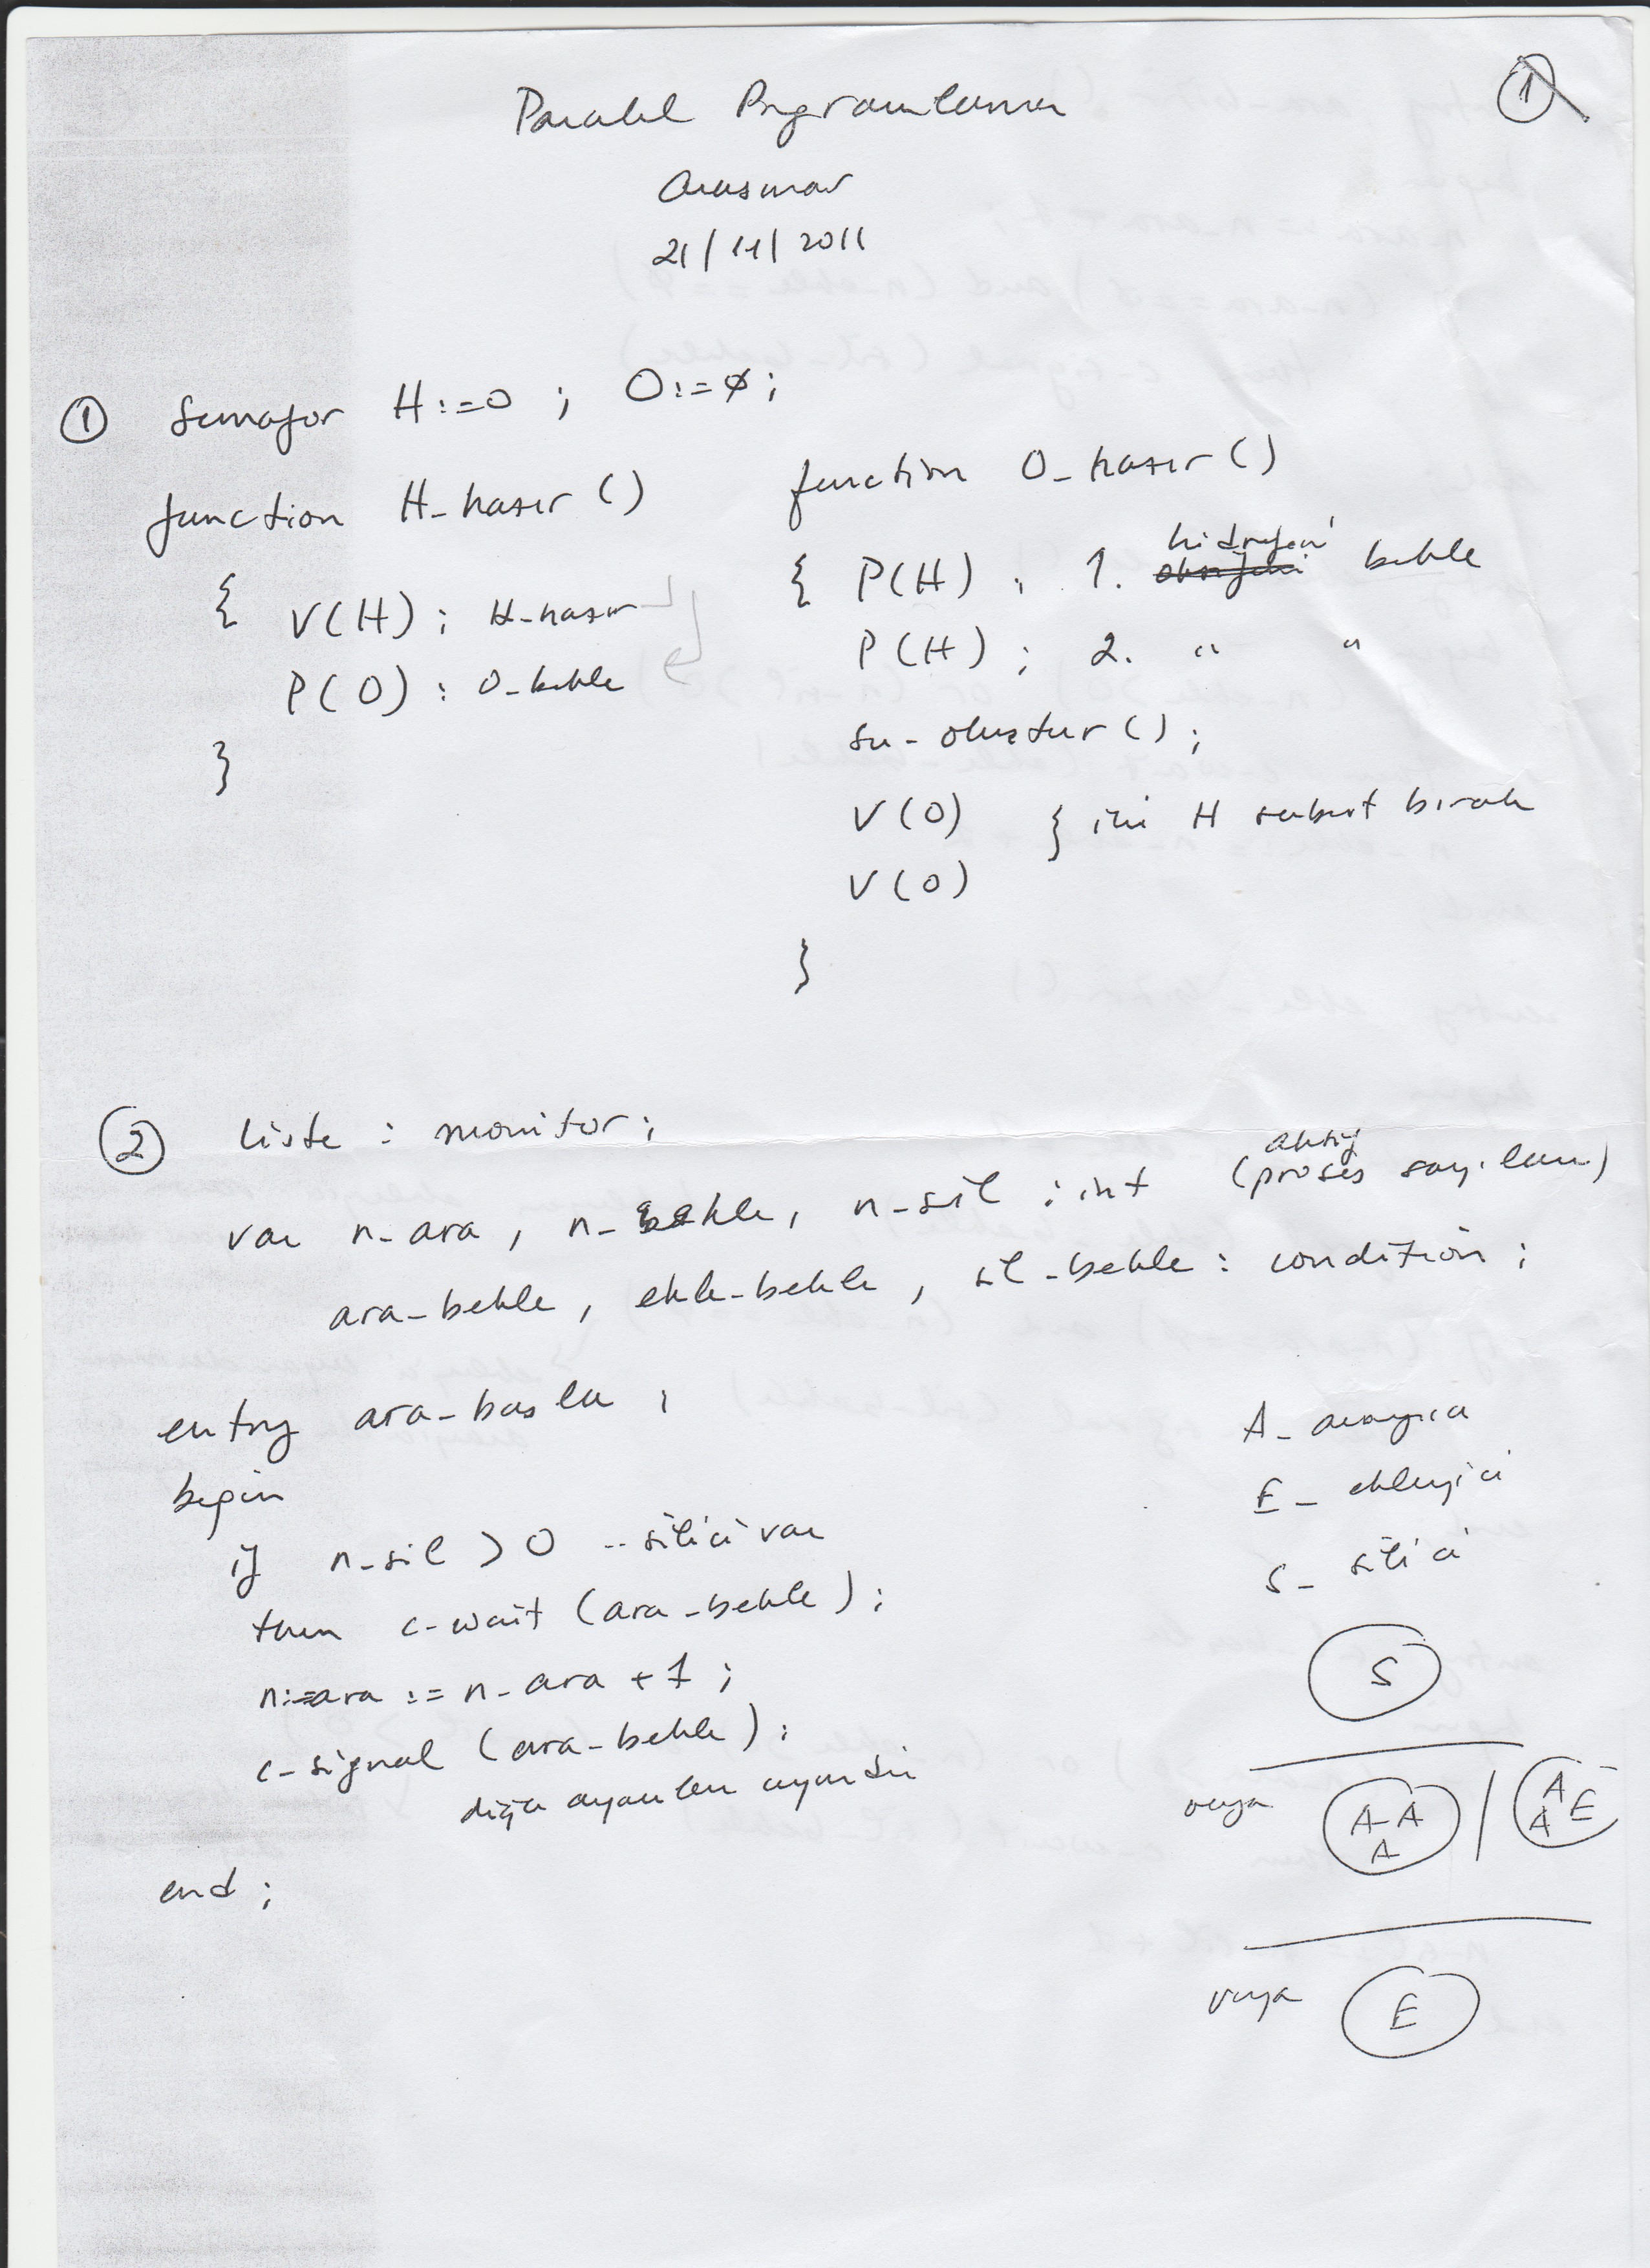 1
Paralel Programlama
Arasınav
21/11/2011
① Semafor H:=0 ; O:=0;
function H_hazır ()
{ V(H) ; H_hazır
P(O) : O_bekle
}
function O_hazır ()
{ P(H) ; 1. hidrojeni bekle
P(H) ; 2. " "
su_oluştur () ;
V(O) } iki H serbest bırak
V(O)
}
② liste : monitor ;
var n_ara , n_ekle , n_sil : int (aktif proses sayıları)
ara_bekle , ekle_bekle , sil_bekle : condition ;
entry ara_basla ;
begin
if n_sil > 0 -- silici var
then c_wait (ara_bekle) ;
n_ara := n_ara + 1 ;
c_signal (ara_bekle) ;
diğer
end ;
A_ arayıcı
E_ ekleyici
S_ silici
S
veya A A A / A A E
veya E